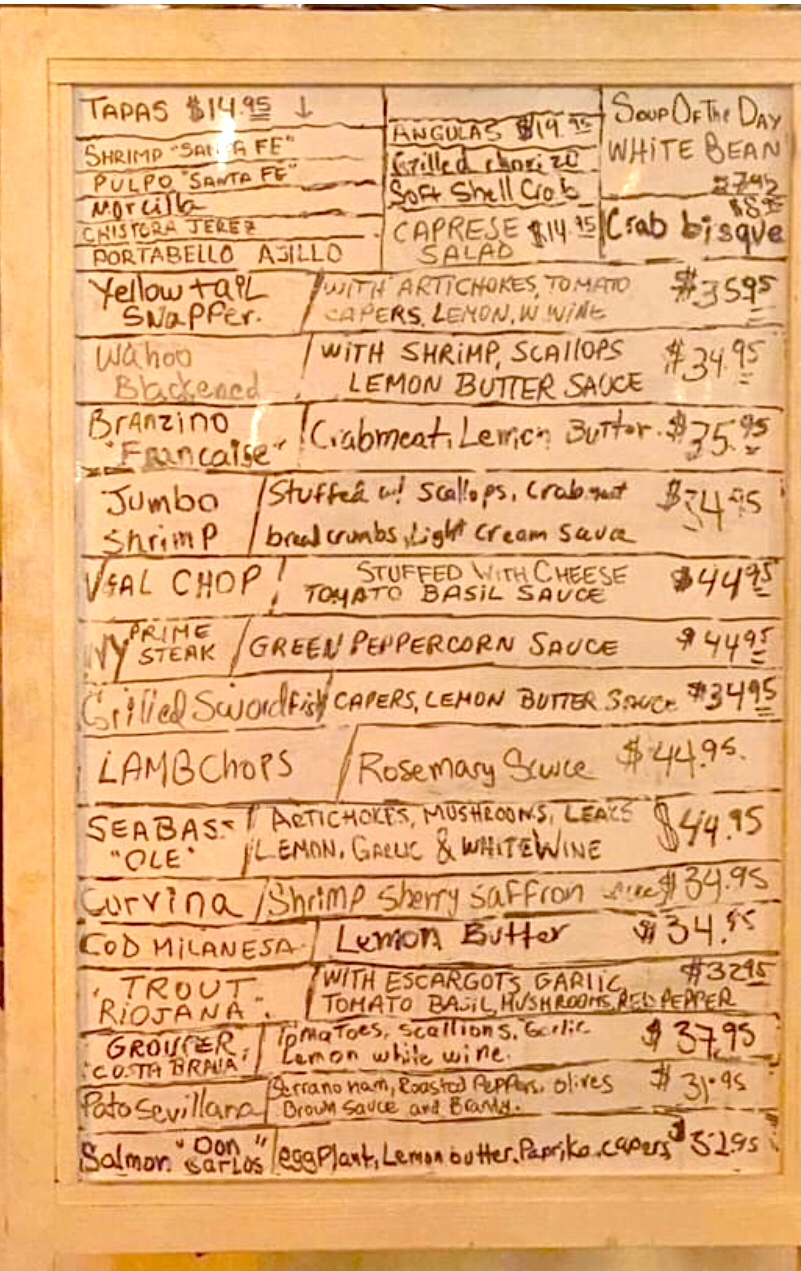 TAPAS $14.95 ↓
SHRIMP "SANTA FE"
PULPO "SANTA FE"
Morcilla
CHISTORA JEREZ
PORTABELLO AJILLO
ANGULAS $19.95
Grilled chorizo
Soft Shell Crab
CAPRESE $14.95
SALAD
Soup Of The Day
WHITE BEAN
$7.95
$8.95
Crab bisque
Yellowtail / WITH ARTICHOKES, TOMATO $35.95
SNAPPER. CAPERS, LEMON, W. WINE
Wahoo / WITH SHRIMP, SCALLOPS $34.95
Blackened LEMON BUTTER SAUCE
Branzino / Crabmeat, Lemon Butter. $35.95
"Francaise"
Jumbo / Stuffed w/ Scallops, Crabmeat $34.95
Shrimp breadcrumbs, Light Cream Sauce
VEAL CHOP / STUFFED WITH CHEESE $44.95
TOMATO BASIL SAUCE
NY PRIME STEAK / GREEN PEPPERCORN SAUCE $44.95
Grilled Swordfish / CAPERS, LEMON BUTTER SAUCE $34.95
LAMB CHOPS / Rosemary Sauce $44.95.
SEABASS / ARTICHOKES, MUSHROOMS, LEAKS $44.95
"OLE" LEMON, GARLIC & WHITE WINE
Corvina / Shrimp Sherry Saffron $34.95
COD MILANESA / Lemon Butter $34.95
"TROUT / WITH ESCARGOTS GARLIC $32.95
RIOJANA". TOMATO BASIL, MUSHROOMS, RED PEPPER
GROUPER / Tomatoes, Scallions, Garlic $37.95
COSTA BRAVA Lemon white wine.
Pato Sevillana / Serrano ham, Roasted Peppers, olives $31.95
Brown Sauce and Brandy.
Salmon "Don Carlos" / eggplant, Lemon butter, Paprika, capers $32.95